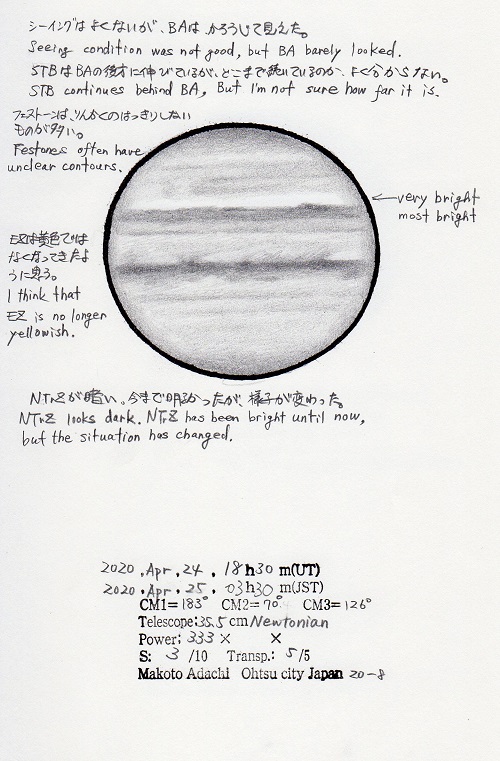 シーイングはよくないが、BAは かろうじて見えた。
Seeing condition was not good, but BA barely looked.
STBはBAの後方に伸びているが、どこまで続いているのか、よく分からない。
STB continues behind BA, But I'm not sure how far it is.
フェストーンは、りんかくのはっきりしない
ものが多い。
Festones often have
unclear contours.
←very bright
most bright
EZは黄色では
なくなってきたよ
うに思う。
I think that
EZ is no longer
yellowish.
NTrZが暗い。今まで明るかったが、様子が変わった。
NTrZ looks dark. NTrZ has been bright until now,
but the situation has changed.
2020 .Apr .24 . 18h30 m(UT)
2020 .Apr . 25 . 03h30 m(JST)
CM1=183° CM2=70° CM3=126°
Telescope:35.5cm Newtonian
Power; 333× ×
S: 3 /10 Transp.: 5 /5
Makoto Adachi Ohtsu city Japan 20-8